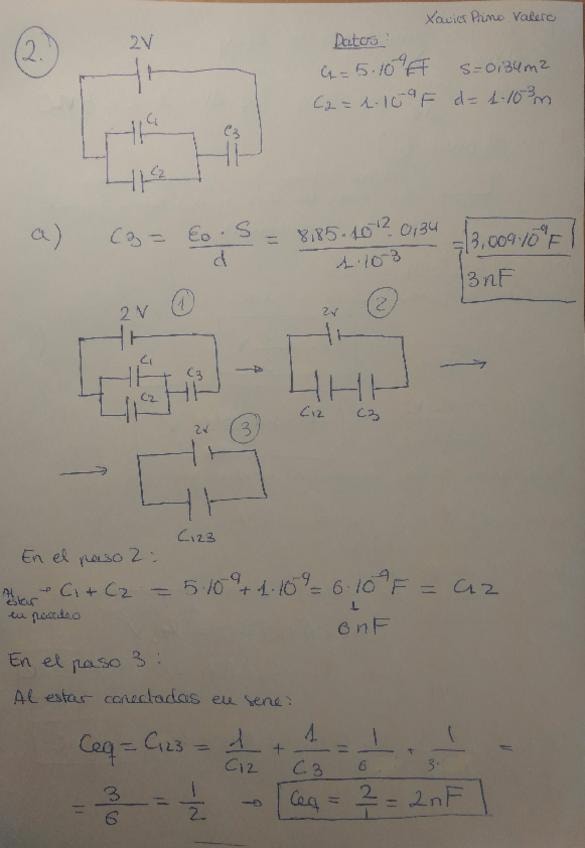 Xavier Primo Valero
2.
2V
C1
C2
C3
Datos:
C1 = 5·10⁻⁹ F S = 0,34 m²
C2 = 1·10⁻⁹ F d = 1·10⁻³ m
a) C3 = ε₀ · S / d = 8,85·10⁻¹² · 0,34 / 1·10⁻³ = 3,009·10⁻⁹ F
3 nF
2V 1
C1
C2
C3
2V 2
C12 C3
2V 3
C123
En el paso 2:
Al estar en paralelo → C1 + C2 = 5·10⁻⁹ + 1·10⁻⁹ = 6·10⁻⁹ F = C12
6 nF
En el paso 3:
Al estar conectadas en serie:
Ceq = C123 = 1/C12 + 1/C3 = 1/6 + 1/3 =
= 3/6 = 1/2 → Ceq = 2/1 = 2 nF